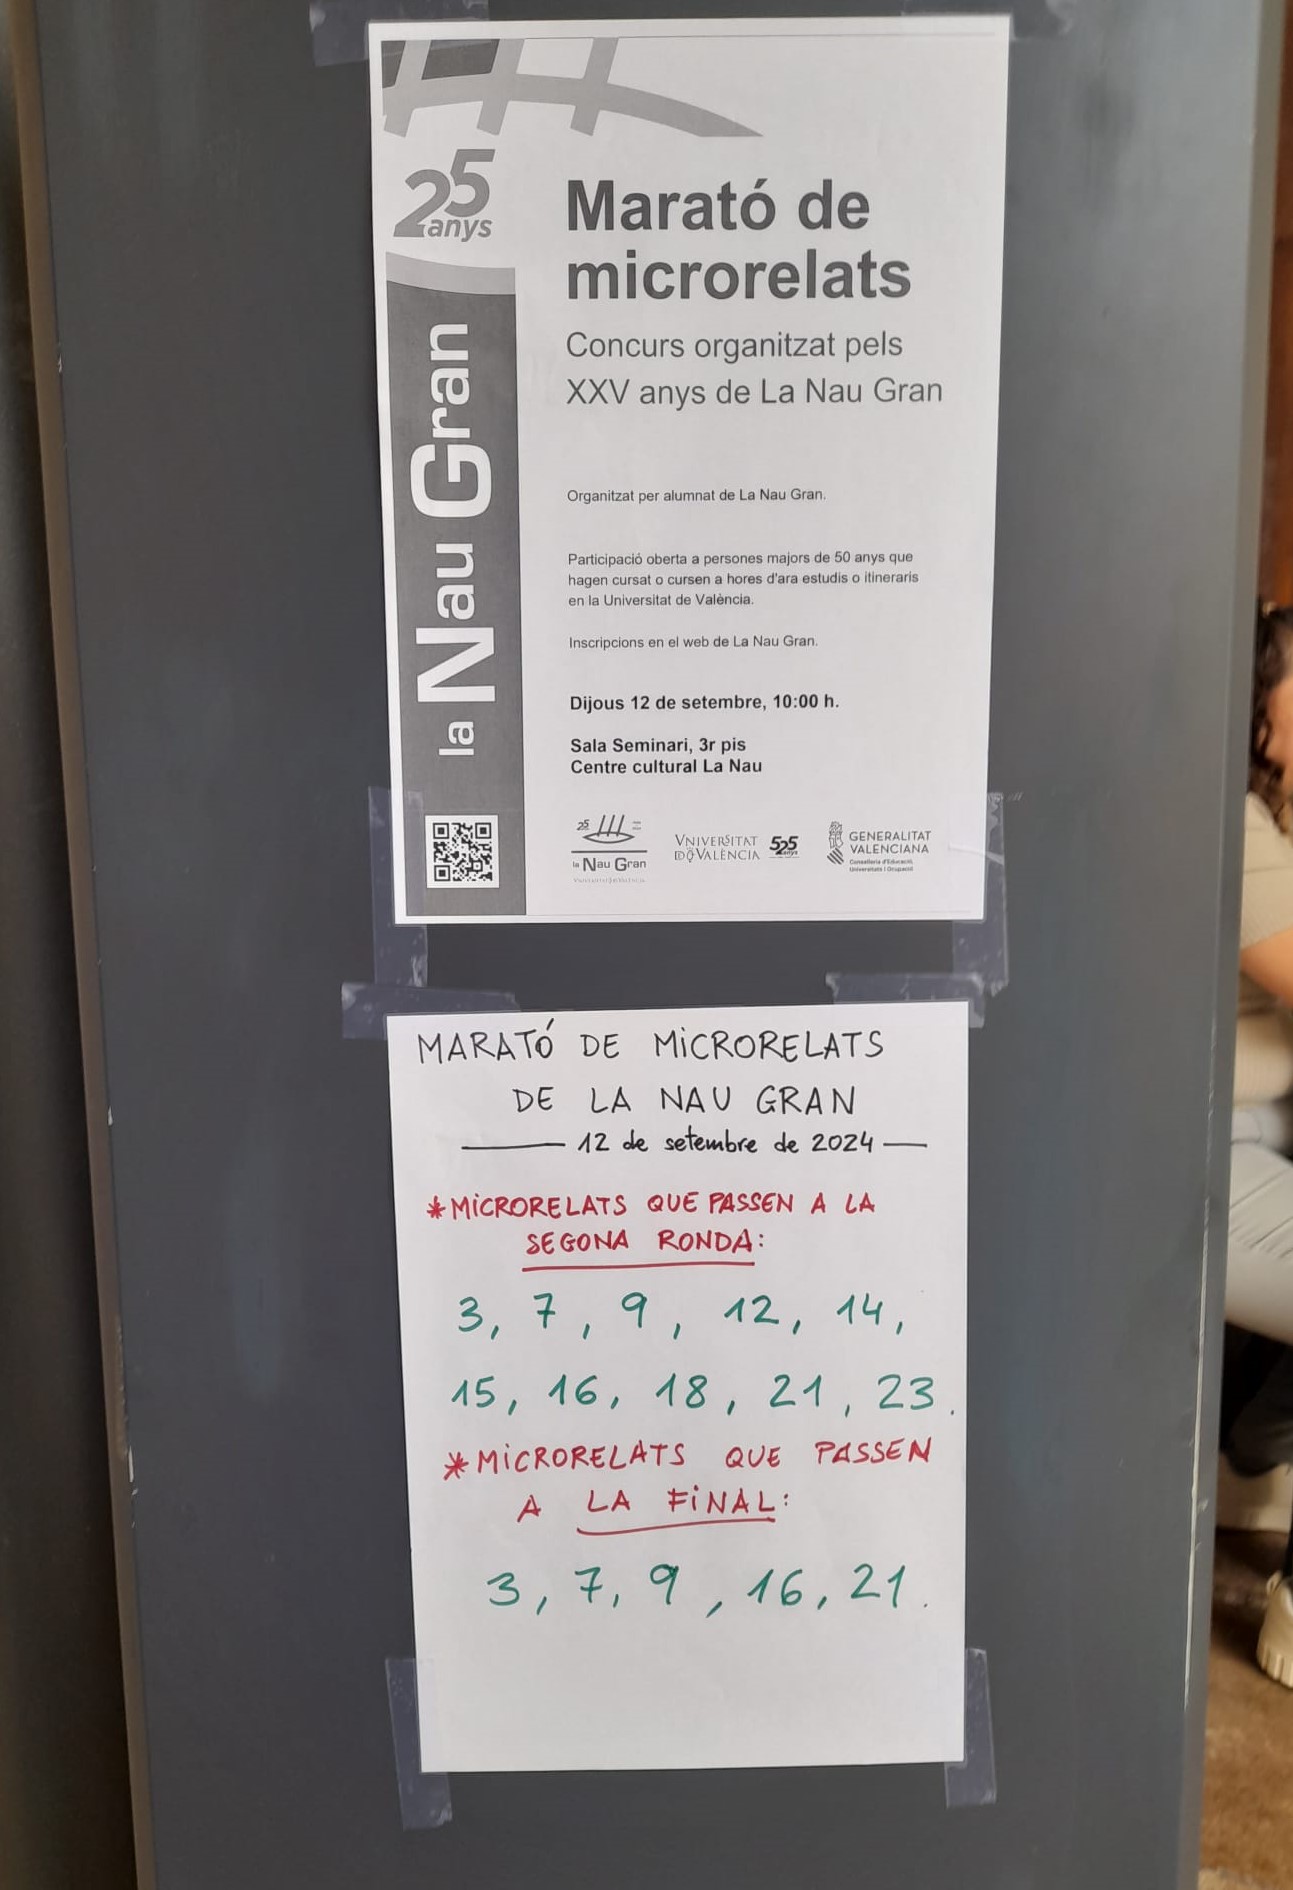 25
anys
la Nau Gran
Marató de
microrelats
Concurs organitzat pels
XXV anys de La Nau Gran
Organitzat per alumnat de La Nau Gran.
Participació oberta a persones majors de 50 anys que
hagen cursat o cursen a hores d'ara estudis o itineraris
en la Universitat de València.
Inscripcions en el web de La Nau Gran.
Dijous 12 de setembre, 10:00 h.
Sala Seminari, 3r pis
Centre cultural La Nau
25
la Nau Gran
VNIVERSITAT
DE VALÈNCIA
525
anys
GENERALITAT
VALENCIANA
Conselleria d'Educació,
Universitats i Ocupació
MARATÓ DE MICRORELATS
DE LA NAU GRAN
12 de setembre de 2024
*MICRORELATS QUE PASSEN A LA
SEGONA RONDA:
3, 7, 9, 12, 14,
15, 16, 18, 21, 23.
*MICRORELATS QUE PASSEN
A LA FINAL:
3, 7, 9, 16, 21.